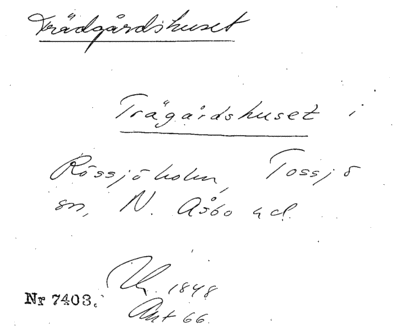 Trädgårdshuset
Trägårdshuset i
Rössjöholm, Tossjö
sn, N. Åsbo hd.
1848
Nr 7403. Akt 66.